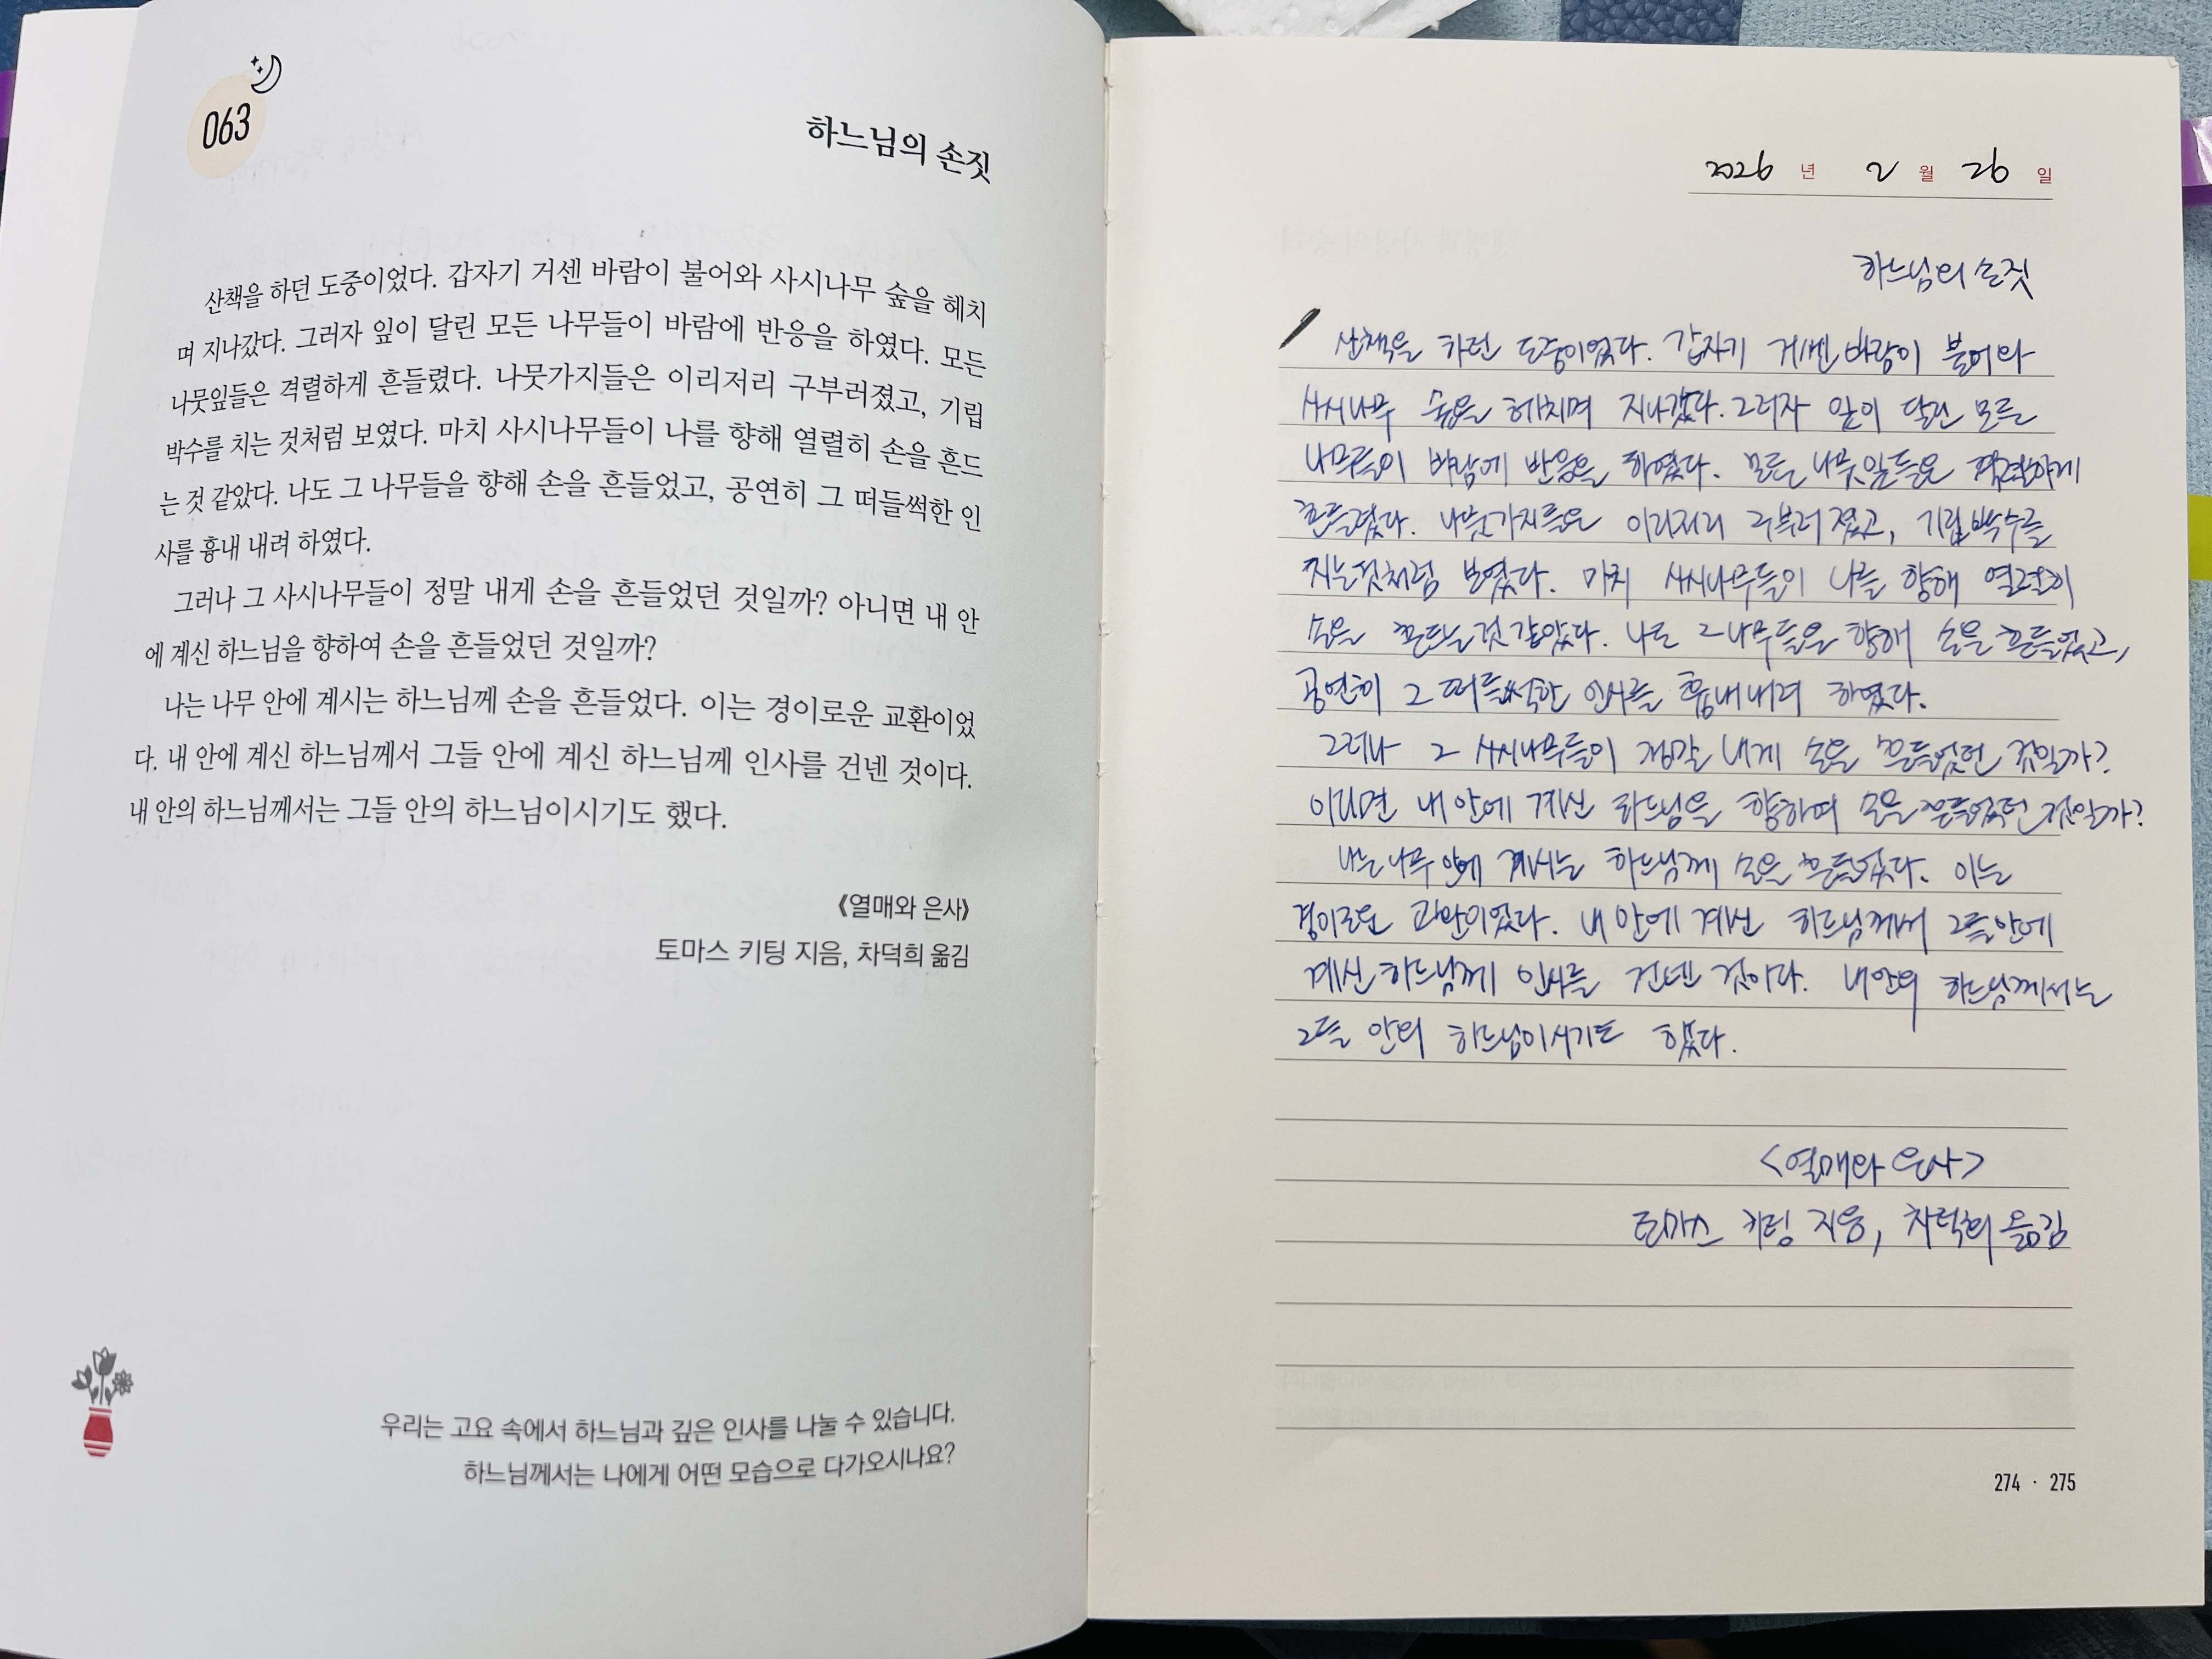 063
하느님의 손짓
산책을 하던 도중이었다. 갑자기 거센 바람이 불어와 사시나무 숲을 헤치
며 지나갔다. 그러자 잎이 달린 모든 나무들이 바람에 반응을 하였다. 모든
나뭇잎들은 격렬하게 흔들렸다. 나뭇가지들은 이리저리 구부러졌고, 기립
박수를 치는 것처럼 보였다. 마치 사시나무들이 나를 향해 열렬히 손을 흔드
는 것 같았다. 나도 그 나무들을 향해 손을 흔들었고, 공연히 그 떠들썩한 인
사를 흉내 내려 하였다.
그러나 그 사시나무들이 정말 내게 손을 흔들었던 것일까? 아니면 내 안
에 계신 하느님을 향하여 손을 흔들었던 것일까?
나는 나무 안에 계시는 하느님께 손을 흔들었다. 이는 경이로운 교환이었
다. 내 안에 계신 하느님께서 그들 안에 계신 하느님께 인사를 건넨 것이다.
내 안의 하느님께서는 그들 안의 하느님이시기도 했다.
《열매와 은사》
토마스 키팅 지음, 차덕희 옮김
우리는 고요 속에서 하느님과 깊은 인사를 나눌 수 있습니다.
하느님께서는 나에게 어떤 모습으로 다가오시나요?
2026 년 2 월 26 일
하느님의 손짓
산책을 하던 도중이었다. 갑자기 거센 바람이 불어와
사시나무 숲을 헤치며 지나갔다. 그러자 잎이 달린 모든
나무들이 바람에 반응을 하였다. 모든 나뭇잎들은 격렬하게
흔들렸다. 나뭇가지들은 이리저리 구부러졌고, 기립박수를
치는것처럼 보였다. 마치 사시나무들이 나를 향해 열렬히
손을 흔드는것 같았다. 나도 그 나무들을 향해 손을 흔들었고,
공연히 그 떠들썩한 인사를 흉내내려 하였다.
그러나 그 사시나무들이 정말 내게 손을 흔들었던 것일까?
아니면 내 안에 계신 하느님을 향하여 손을 흔들었던 것일까?
나는 나무 안에 계시는 하느님께 손을 흔들었다. 이는
경이로운 교환이었다. 내 안에 계신 하느님께서 그들 안에
계신 하느님께 인사를 건넨 것이다. 내 안의 하느님께서는
그들 안의 하느님이시기도 했다.
<열매와 은사>
토마스 키팅 지음, 차덕희 옮김
274 · 275